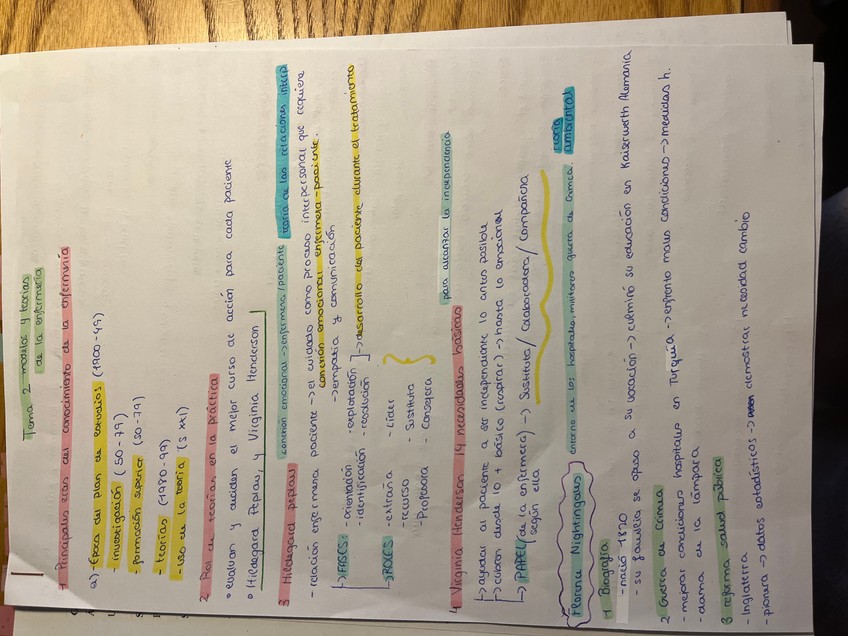 Tema 2 - modelos y teorías
de la enfermería
1 Principales eras del conocimiento de la enfermería
a) - Época del plan de estudios (1900-49)
- investigación (50-79)
- formación superior (50-79)
- teorías (1980-99)
- uso de la teoría (s XXI)
2 Rol de teorías en la práctica
• evaluan y deciden el mejor curso de acción para cada paciente
• Hildegard Peplau, y Virginia Henderson
3 Hildegard peplau conexión emocional → enfermera/paciente teoría de las relaciones interp
- relación enfermera paciente → el cuidado como proceso interpersonal que requiere
conexión emocional enfermera-paciente.
→ empatia y comunicación
↳ FASES: - orientación - explotación
- identificación - resolución ] → desarrollo del paciente durante el tratamiento
↳ ROLES - extraña - Líder
- recurso - Sustituta
- Profesora - Consejera
4 Virginia Henderson 14 necesidades básicas para alcanzar la independencia
↳ ayudar al paciente a ser independiente lo antes posible
↳ cubren desde lo + básico (respirar) → hasta lo emocional
↳ PAPEL (de la enfermera) → Sustituta / Colaboradora / Compañera
según ella
Florence Nightingale entorno de los hospitales, militares guerra de Crimea. teoría
ambiental
1 Biografía
- nació 1820
- su familia se opuso a su vocación → culminó su educación en Kaiserwerth Alemania
2 Guerra de Crimea
- mejorar condiciones hospitales en Turquía → enfrento malas condiciones → medidas h.
- dama de la lámpara
3 reforma salud pública
- Inglaterra
- pionera → datos estadísticos → demostrar necesidad cambio